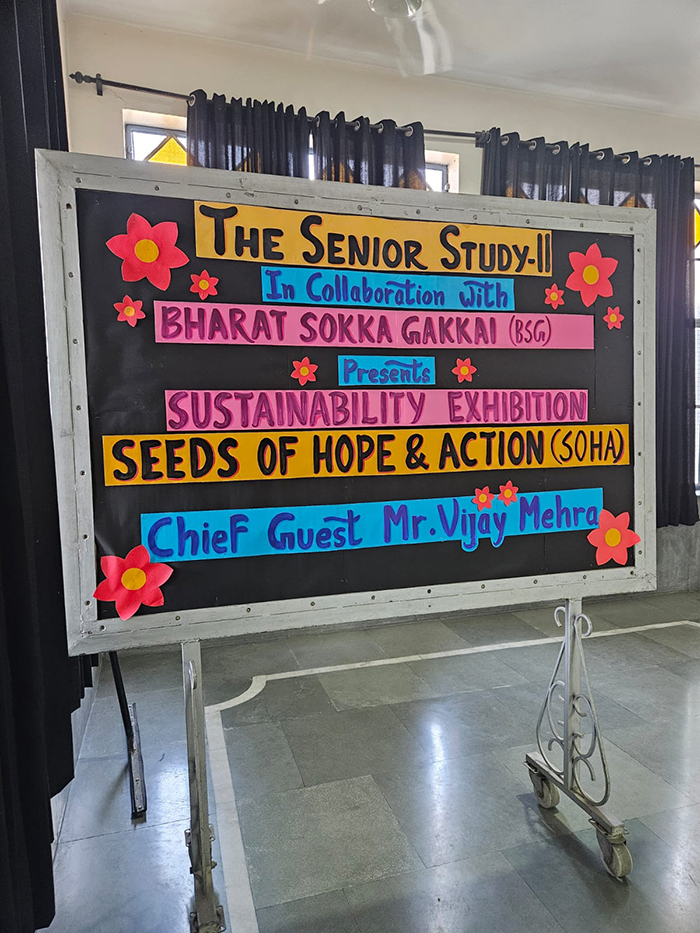 THE SENIOR STUDY-II
In Collaboration with
BHARAT SOKKA GAKKAI (BSG)
Presents
SUSTAINABILITY EXHIBITION
SEEDS OF HOPE & ACTION (SOHA)
Chief Guest Mr. Vijay Mehra